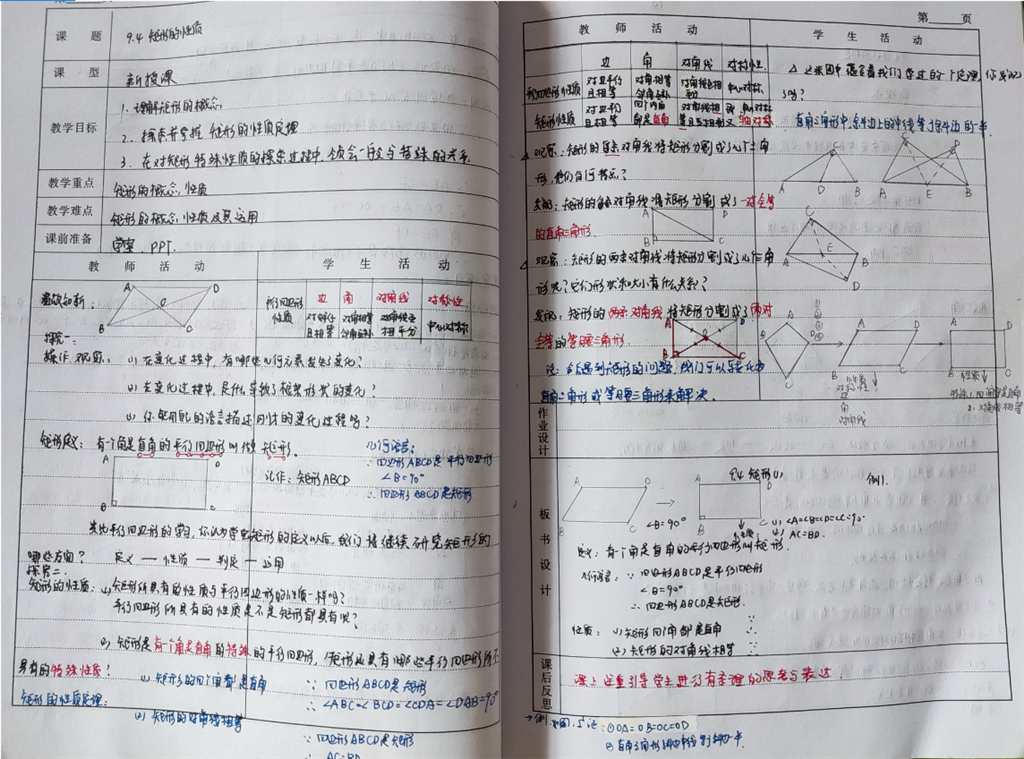 课 题 9.4 矩形的性质
课 型 新授课
教学目标 1. 理解矩形的概念.
2. 探索并掌握矩形的性质定理
3. 在对矩形特殊性质的探索过程中, 领会一般与特殊的关系.
教学重点 矩形的概念, 性质
教学难点 矩形的概念, 性质及其运用
课前准备 学案. PPT.
教 师 活 动 学 生 活 动
温故知新:
A D O B C
平行四边形性质 边 角 对角线 对称性
对边平行且相等 对角相等 邻角互补 对角线互相平分 中心对称
探究一:
操作、观察. (1) 在变化过程中, 有哪些几何元素发生了变化?
(2) 在变化过程中, 是什么导致了框架形状的变化?
(3) 你能用几何的语言描述同样的变化过程吗?
矩形定义: 有一个角是直角的平行四边形叫做矩形.
A D B C
记作: 矩形ABCD
几何语言:
∵ 四边形ABCD是平行四边形
∠B=90°
∴ 四边形ABCD是矩形
类比平行四边形的学习, 你认为学完矩形的定义以后, 我们将继续研究矩形的
哪些方面? 定义 — 性质 — 判定 — 运用
探究二.
矩形的性质: (1) 矩形所具有的性质与平行四边形的性质一样吗?
平行四边形所具有的性质是不是矩形都具有呢?
(2) 矩形是有一个角是直角的特殊的平行四边形,
具有的特殊性质?
矩形的性质定理: (1) 矩形的四个角都是直角
∵ 四边形ABCD是矩形
∴ ∠ABC=∠BCD=∠CDA=∠DAB=90°
(2) 矩形的对角线相等
∵ 四边形ABCD是矩形
∴ AC=BD
第 页
教 师 活 动 学 生 活 动
边 角 对角线 对称性
平行四边形性质 对边平行且相等 对角相等 邻角互补 对角线互相平分 中心对称
矩形性质 对边平行且相等 四个角都是直角 对角线相等且互相平分 中心对称 轴对称
直角三角形中, 斜边上的中线等于斜边的一半.
△ 观察: 矩形的一条对角线将矩形分割成了几个三角
形, 它们有何特点?
发现: 矩形的一条对角线将矩形分割成了一对全等
的直角三角形.
△ 观察: 矩形的两条对角线将矩形分割成了几个三角
形呢? 它们形状和大小有什么关系?
发现: 矩形的两条对角线将矩形分割成了两对
全等的等腰三角形.
注: 当遇到矩形的问题, 我们可以转化为
直角三角形或等腰三角形来解决.
作业设计
板书设计
9.4 矩形(1) 例1.
∠B=90°
(1) ∠A=∠B=∠C=∠D=90°
(2) AC=BD.
定义: 有一个角是直角的平行四边形叫矩形.
几何语言: ∵ 四边形ABCD是平行四边形
∠B=90°
∴ 四边形ABCD是矩形.
性质: (1) 矩形四个角都是直角
(2) 矩形的对角线相等
课后反思
课上注重引导学生进行有条理的思考与表达
OA=OB=OC=OD